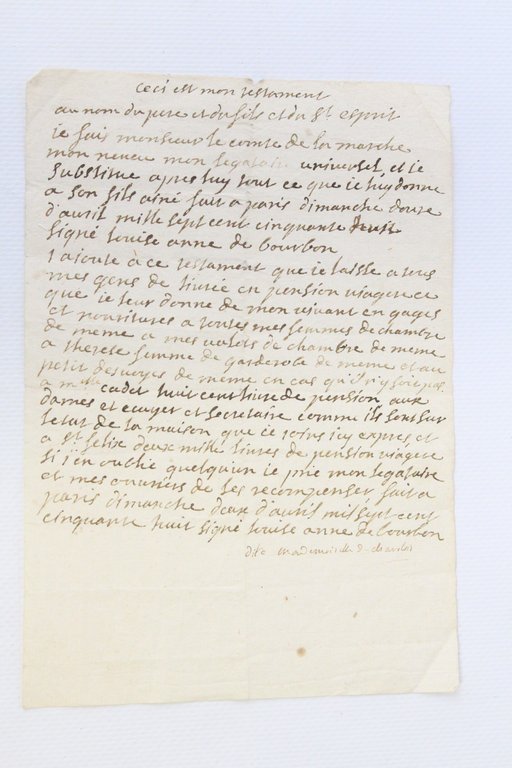 ceci est mon testament
au nom du pere et du fils et du St esprit
ie fais monsieur le comte de la marche
mon neveu mon legataire universel, et ie
substitue apres luy tout ce que ie luy donne
a son fils ainé fait a paris dimanche douze
d'avril mille sept cent cinquante
signé louise anne de bourbon
j aioute à ce testament que ie laisse a tous
mes gens de livrée en pension viagere ce
que ie leur donne de mon vivant en gages
et nouritures a toutes mes femmes de chambre
de meme a mes valets de chambre de meme
a therese femme de garderobe de meme et au
petit desvoyes de meme en cas qu'il n'y soit pas
a mlle cadet huit cent livre de pension aux
dames et ecuyer et secretaire comme ils sont sur
letat de la maison que ie joins icy expres et
a St felix deux mille livres de pension viagere
si j'en oublie quelqu'un ie prie mon legataire
et mes de les recompenser, fait a
paris dimanche deux d'avril mil sept cent
cinquante huit signé louise anne de bourbon
dite mademoiselle de charolois